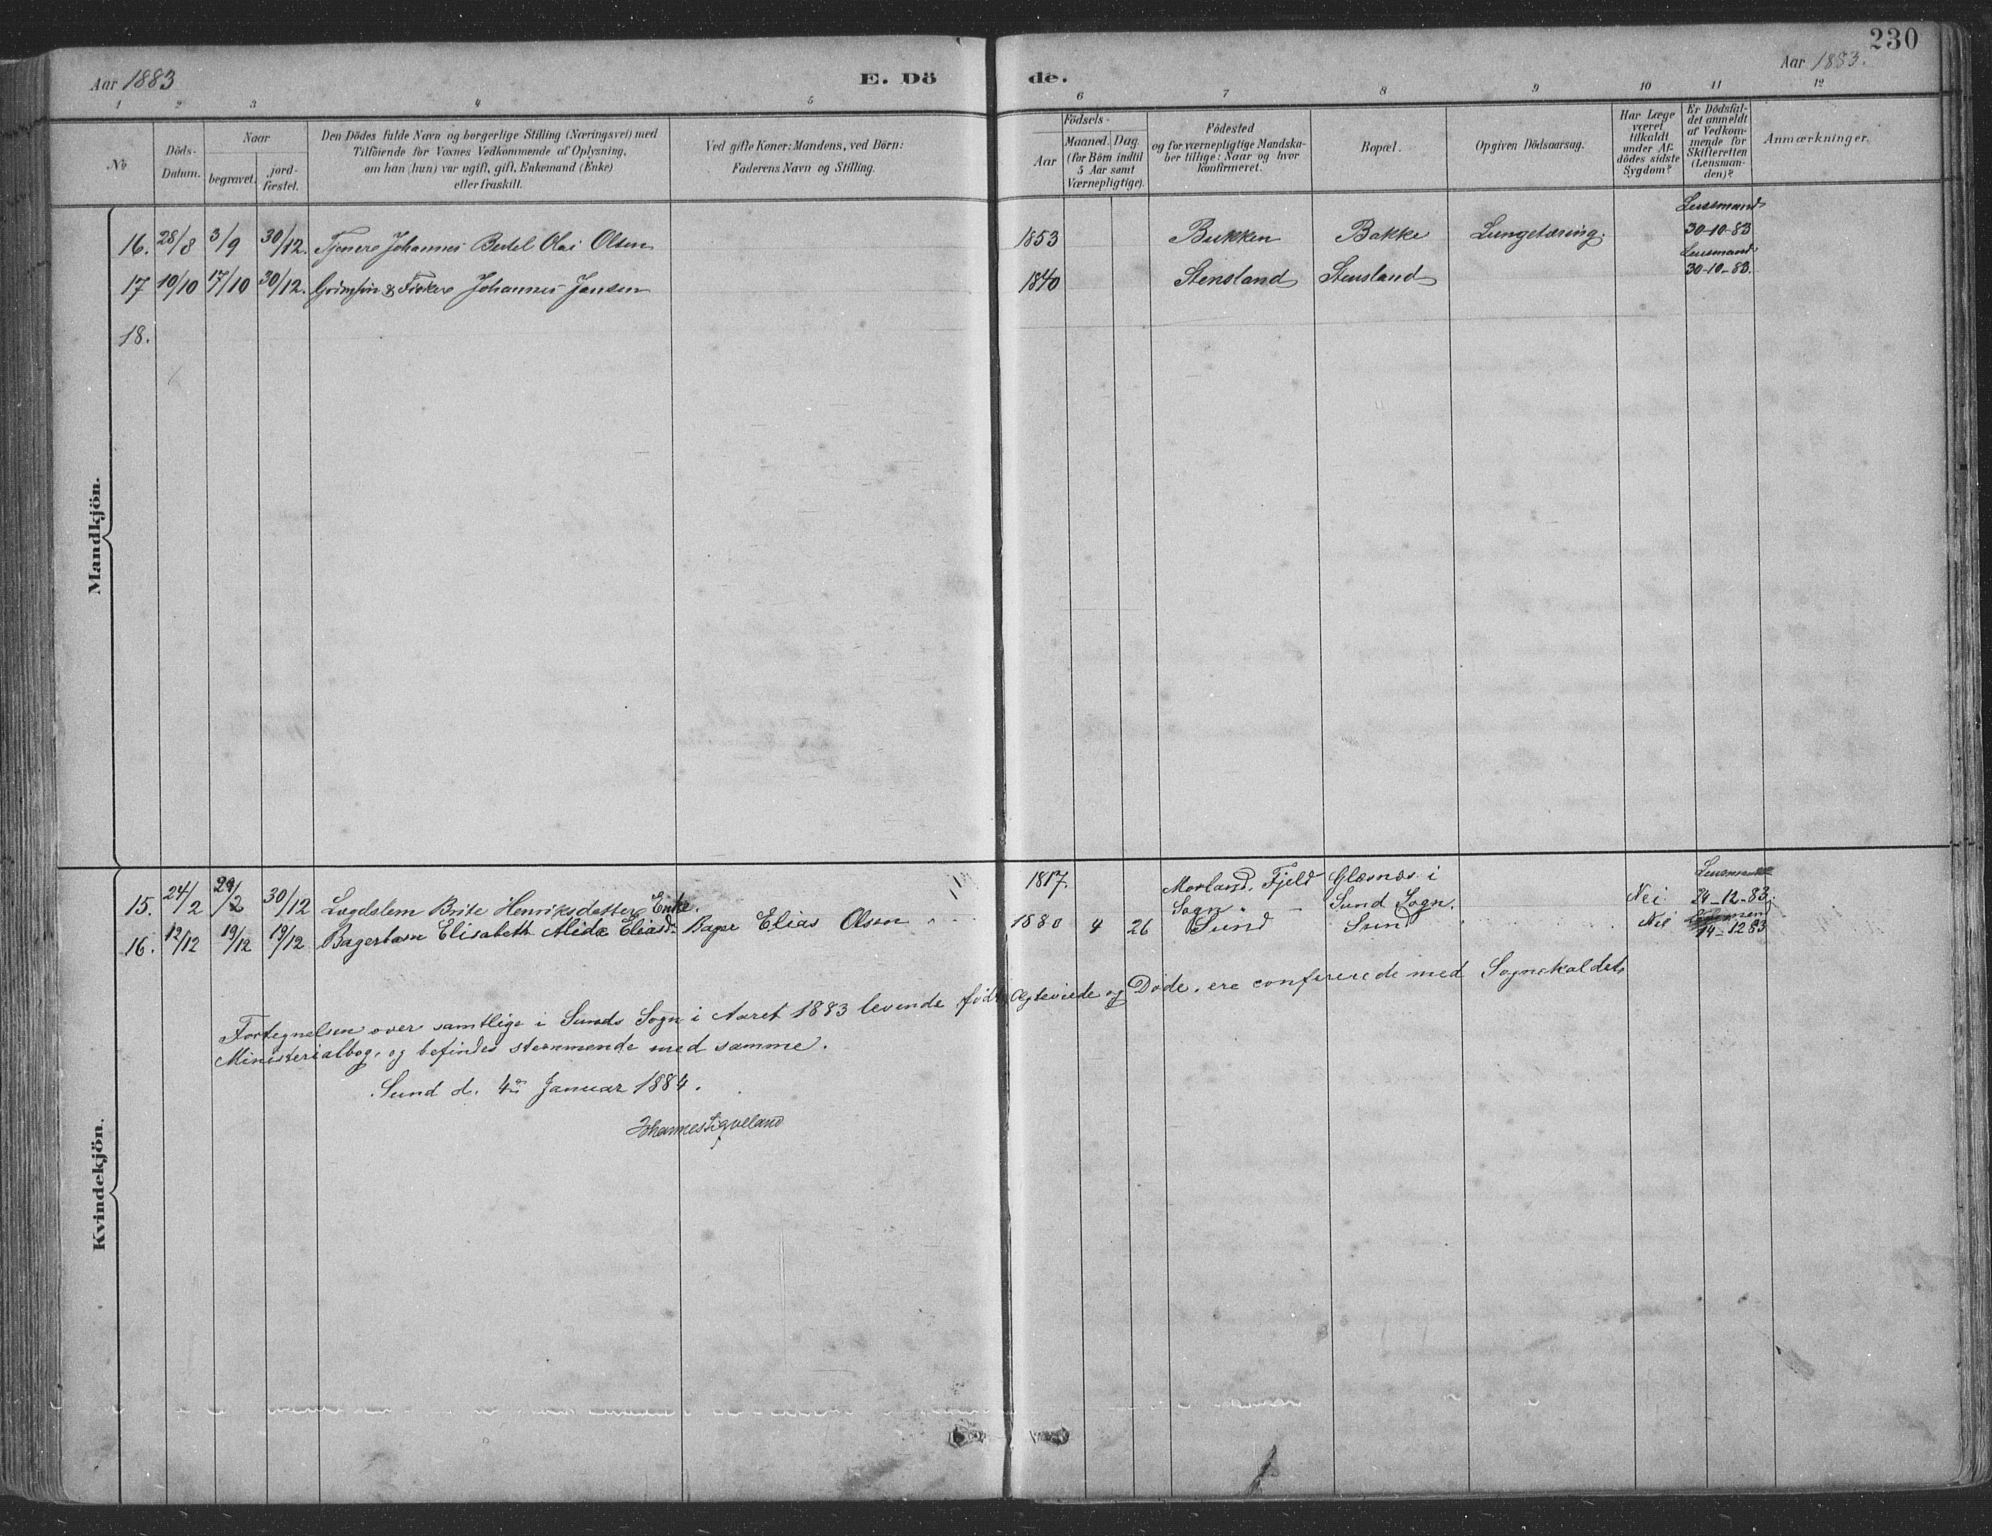 230
Aar 1883
E. Dö
de.
Aar 1883.
1 2 3 4 5 6 7 8 9 10 11 12
No
Döds-
Datum.
Naar
begravet.
jord-
fæstet.
Den Dödes fulde Navn og borgerlige Stilling (Næringsvei) med
Tilföiende for Voxnes Vedkommende af Oplysning,
om han (hun) var ugift, gift, Enkemand (Enke)
eller fraskilt.
Ved gifte Koner: Mandens, ved Börn:
Faderens Navn og Stilling.
Födsels-
Aar
Maaned. Dag.
(for Börn indtil
5 Aar samt
Værnepligtige).
Födested
og for værnepligtige Mandska-
ber tillige: Naar og hvor
konfirmeret.
Bopæl.
Opgiven Dödsaarsag.
Har Læge
været
tilkaldt
under Af-
dödes sidste
Sygdom?
Er Dödsfal-
det anmeldt
af Vedkom-
mende for
Skifteretten
(Lensman-
den)?
Anmærkninger.
Mandkjön.
16. 28/8 3/9 30/12. Tjener Johannes Bertel Olai Olsen 1853 Bukken Bakke Lungetæring. Lensmand 30-10-83
17 10/10 17/10 30/12. Johannes Jansen 1840 Stensland Stensland Lensmand 30-10-83.
18.
Kvindekjön.
15. 24/2 30/12 Lægdslem Brite Henriksdatter Enke. 1817. Morland, Fjeld Sogn Glæsnæs i Sund Sogn. Nei 24-12-83.
16. 12/12 19/12 19/12 Bagerbarn Elisabeth Alida Eliasd. Bager Elias Olsen 1880 4 26 Sund Sund Nei 14-12 83
Fortegnelsen over samtlige i Sunds Sogn i Aaret 1883 levende födte, Ægteviede og Döde, ere confererede med Sognekaldets
Ministerialbog, og befindes stemmende med samme.
Sund d. 4de Januar 1884.
Johannes Sigveland